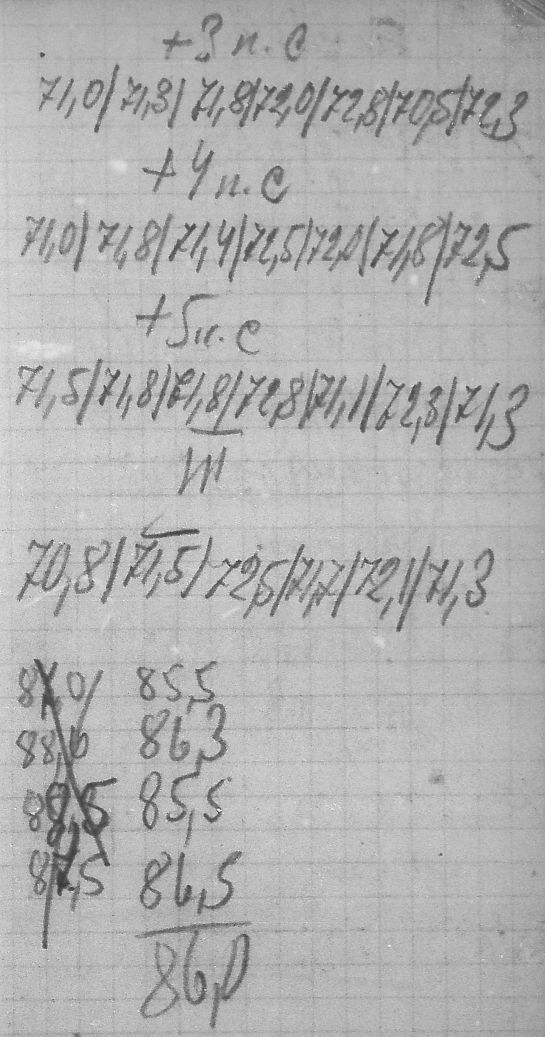 +3 п. с
71,0/ 71,3/ 71,8/72,0/72,8/70,5/72,3
+4 п. с
71,0/ 71,8/ 71,4/72,5/72,0/71,8/72,5
+5 п. с
71,5/71,8/71,8/72,8/71,1/72,3/71,3
III
70,8/71,5/ 72,5/71,7/72,1/71,3
87,0/ 85,5
88,0 86,3
88,5 85,5
87,5 86,5
86,0